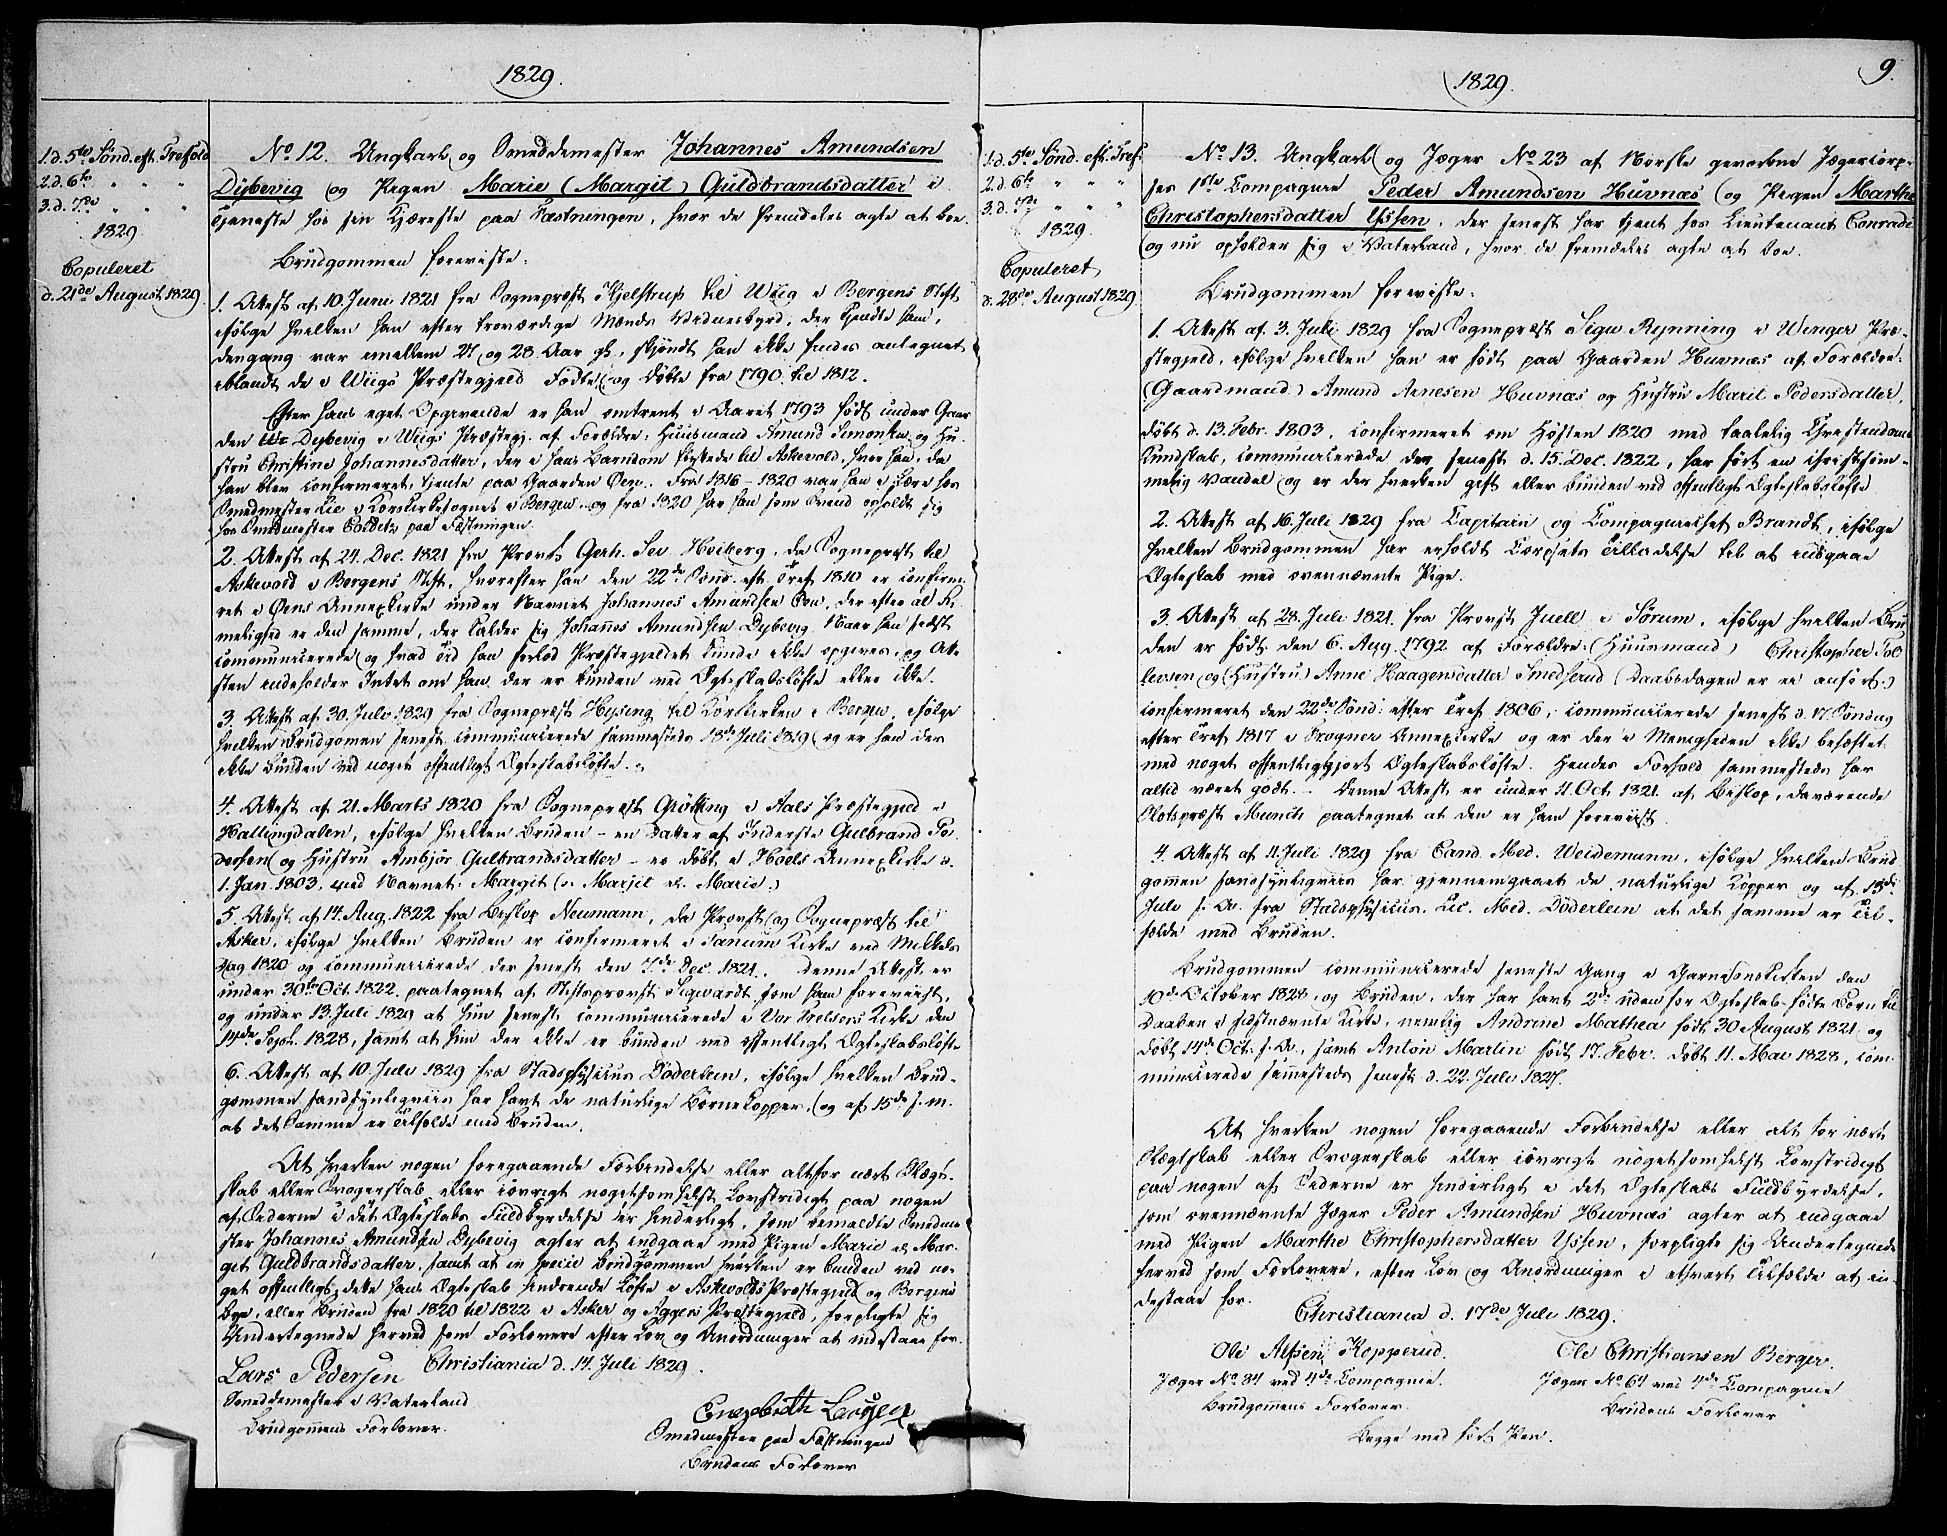 1829.
1. d. 5te Sønd. eft. Trefold
2. d. 6te " " "
3. d. 7de " " "
1829
Copuleret
d. 21de August 1829.
No 12. Ungkarl og Smeddemester Johannes Amundsen
Dybevig og Pigen Marie (Margit) Guldbrandsdatter i
Tjeneste hos sin Kjæreste paa Fæstningen, hvor de fremdeles agte at boe.
Brudgommen foreviste:
1. Attest af 10. Juni 1821 fra Sognepræst Kjelstrup til Wiig i Bergens Stift
ifølge hvilken han efter troværdige Mænds Vidnesbyrd, der kjendte ham,
dengang var imellem 27 og 28 Aar gl., skjøndt han ikke findes antegnet
iblandt de i Wiigs Præstegjeld Fødte og Døbte fra 1790 til 1812.
Efter hans eget Opgivende er han omtrent i Aaret 1793 født under Gaar
den Dybevig i Wiigs Præstegj. af Forældre: Huusmand Amund Simonsen og Hu-
stru Christine Johannesdatter, der i hans Barndom flyttede til Askevold, hvor han, da
han blev confirmeret, tjente paa Gaarden Øen. Fra 1816-1820 var han i Lære hos
Smedmester Lie i Korskirkesognet i Bergen og fra 1820 har han som Svend opholdt sig
hos Smedmester paa Fæstningen.
2. Attest af 24. Dec. 1821 fra Provst Gerh. Sev. Heiberg, da Sognepræst til
Askevold i Bergens Stift, hvorefter han den 22de Sønd. eft. Tref. 1810 er confirme-
ret i Øens Annexkirke under Navnet Johannes Amundsen Øen, der efter al Ri-
melighed er den samme, der kalder sig Johannes Amundsen Dybevig. Naar han sidst
communicerede og hvad Tid han forlod Præstegjeldet kunde ikke opgives, og Atte-
sten indeholder Intet om han der er bunden ved Ægteskabsløfte eller ikke.
3. Attest af 30. Juli 1829 fra Sognepræst Hysing til Korskirken i Bergen, ifølge
hvilken Brudgomen senest communicerede sammesteds 18de Juli 1819 og er han der
ikke bunden ved noget offentligt Ægteskabsløfte.
4. Attest af 21. Marts 1820 fra Sognepræst Grøtting i Aals Præstegjeld i
Hallingdalen, ifølge hvilken Bruden – en Datter af Inderste Gulbrand Pe-
dersen og Hustru Ambjør Gulbrandsdatter – er døbt i Hoels Annexkirke d.
1. Jan. 1803. med Navnet: Margit (v. Marjit el. Marie.)
5. Attest af 14. Aug. 1822 fra Biskop Neumann, da Provst og Sognepræst til
Asker, ifølge hvilken Bruden er confirmeret i Tanum Kirke ved Mikkels
dag 1820 og communicerede der senest den 7de Dec. 1821. Denne Attest er
under 30te Oct. 1822 paategnet af Stiftsprovst Sigwardt som ham foreviist,
og under 13. Juli 1829 at hun senest communicerede i Vor Frelsers Kirke den
14de Sept. 1828, samt at hun der ikke er bunden ved offentligt Ægteskabsløfte
6. Attest af 10. Juli 1829 fra Stadsphysicus Døderlein, ifølge hvilken Brud-
gommen sandsynligviis har havt de naturlige Børnekopper, og af 15de s. M.
at det Samme er Tilfælde med Bruden.
At hverken nogen foregaaende Forbindelse eller altfor nært Slægt-
skab eller Svogerskab eller iøvrigt nogetsomhelst Lovstridigt paa nogen
af Siderne i det Ægteskabs Fuldbyrdelse er hinderligt, som bemeldte Smedme
ster Johannes Amundsen Dybevig agter at indgaae med Pigen Marie el. Mar-
get Guldbrandsdatter, samt at in specie Brudgommen hverken er bunden ved no-
get offentligt, dette hans Ægteskab hindrende Løfte i Askevolds Præstegjeld og Bergens
Bye, eller Bruden fra 1820 til 1822 i Asker og Aggers Præstegjeld, forpligte sig
Undertegnede herved som Forlovere efter Lov og Anordninger at indestaae for.
Christiania d. 14. Juli 1829.
Lars Pedersen
Smeddemester i Vaterland
Brudgommens Forlover.
Smedmester paa Fæstningen
Brudens Forlover
1829.
9.
1. d. 5te Sønd. eft. Tref.
2. d. 6te " " "
3. d. 7de " " "
1829.
Copuleret
d. 28de August 1829
No 13. Ungkarl og Jæger No 23 af Norske gevorbne Jægercorp-
ses 1ste Compagnie Peder Amundsen Huvnæs og Pigen Marthe
Christophersdatter Yssen, der senest har tjent hos Lieutenant Conradi
og nu opholder sig i Vaterland, hvor de fremdeles agte at boe.
Brudgommen foreviste:
1. Attest af 3. Juli 1829 fra Sognepræst Sigw. Rynning i Winger Præ-
stegjeld, ifølge hvilken han er født paa Gaarden Huvnæs af Forældre:
(Gaardmand) Amund Arnesen Huvnæs og Hustru Marit Pedersdatter,
døbt d. 13. Febr. 1803, confirmeret om Høsten 1820 med taalelig Christendoms
Kundskab, communicerede der senest d. 15. Dec. 1822, har ført en christsøm-
melig Vandel og er der hverken gift eller bunden ved offentligt Ægteskabsløfte
2. Attest af 16. Juli 1829 fra Capitain og Compagniechef Brandt, ifølge
hvilken Brudgommen har erholdt Corpsets Tilladelse til at indgaae
Ægteskab med ovennævnte Pige.
3. Attest af 28. Juli 1821. fra Provst Juell i Sørum, ifølge hvilken Bru
den er født den 6. Aug. 1792 af Forældre: (Huusmand) Christopher Tol
levsen og (Hustru) Anne Haagensdatter Smedserud (Daabsdagen er ei anført)
confirmeret den 22de Sønd: efter Tref. 1806, communicerede senest d. 17. Søndag
efter Tref. 1817 i Frogner Annexkirke og er der i Menigheden ikke behæftet
med noget offentliggjort Ægteskabsløfte. Hendes Forhold sammesteds har
altid været godt. – Denne Attest er under 11. Oct. 1821 af Biskop, daværende
Slotspræst Munch paategnet at den er ham foreviist.
4. Attest af 11. Juli 1829 fra Cand. Med. Weidemann, ifølge hvilken Brud-
gommen sandsynligviis har gjennemgaaet de naturlige Kopper og af 13de
Juli s. A. fra Stadsphysicus, Lic. Med. Döderlein at det samme er Til-
fælde med Bruden.
Brudgommen communicerede seneste Gang i Garnisonskirken den
10de October 1828, og Bruden, der har havt 2de uden for Ægteskab fødte Børn til
Daaben i sidstnævnte Kirke, nemlig Andrine Mathea født 30 August 1821 og
døbt 14de Oct. s. A., samt Anton Martin født 17. Febr. døbt 11. Mai 1828, com-
municerede samesteds senest d. 22. Juli 1827.
At hverken nogen foregaaende Forbindelse eller alt for nært
Slægtskab eller Svogerskab eller iøvrigt nogetsomhelst Lovstridigt
paa nogen af Siderne er hinderligt i det Ægteskabs Fuldbyrdelse,
som ovennævnte Jæger Peder Amundsen Huvnæs agter at indgaae
med Pigen Marthe Christophersdatter Yssen, forpligte sig Undertegnede
herved som Forlovere, efter Lov og Anordninger i ethvert Tilfælde at in-
destaae for.
Christiania d. 17de Juli 1829.
Ole Alfsen Kopperud. Ole Christiansen Berger.
Jæger No 84 ved 4de Compagnie. Jæger No 64 ved 4de Compagnie
Brudgommens Forlover. Brudens Forlover
Begge med ført Pen.